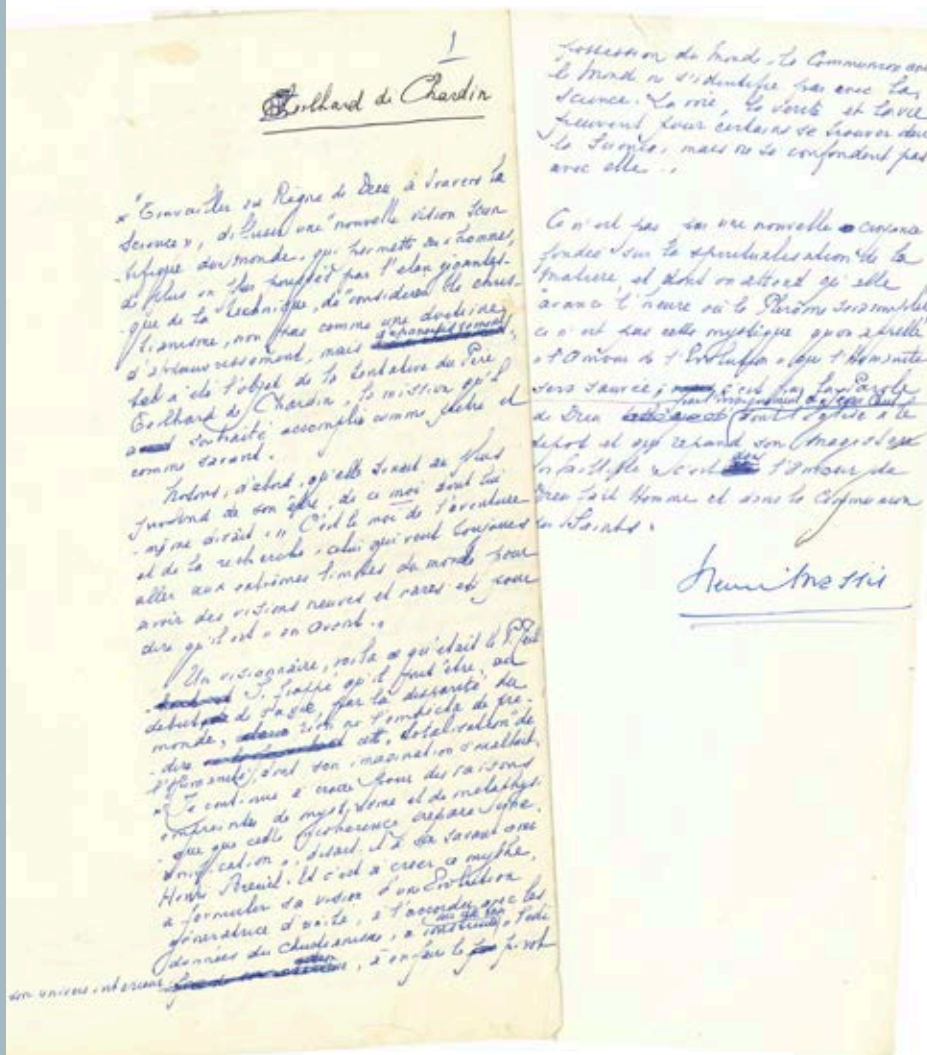 1
Teilhard de Chardin
« Travailler au Règne de Dieu à travers la
Science », diffuser une nouvelle vision scien-
tifique du monde, qui permette aux hommes,
de plus en plus par l'élan gigantes-
que de la technique, de considérer le chris-
tianisme, non pas comme une doctrine
d'appauvrissement, mais d'épanouissement,
tel a été l'objet de la tentative du Père
Teilhard de Chardin, la mission qu'il
souhaité accomplir comme prêtre et
comme savant.
Notons, d'abord, qu'elle tenait au plus
profond de son être, de ce moi dont lui
-même disait : « C'est le moi de l'aventure
et de la recherche, celui qui veut toujours
aller aux extrêmes limites du monde pour
avoir des visions neuves et rares et pour
dire qu'il est « en avant ».
Un visionnaire, voilà ce qu'était le P. Teil
hard. Si frappé qu'il put être, au
début de sa vie par la disparité du
monde, rien ne l'empêcha de pré-
dire cette totalisation de
l'Humanité, dont son imagination
« Je continue à croire pour des raisons
empreintes de mysticisme et de métaphysi-
que que cette incohérence prépare une
unification », disait-il à son savant ami
Henri Breuil. Et c'est à créer ce mythe,
à formuler sa vision d'une Évolution
génératrice d'unité, à l'accorder avec les
données du Christianisme, à construire
son univers intérieur, à en faire le pivot
possession du monde. La Communion avec
le monde ne s'identifie pas avec la
Science. La voie, la vérité et la vie
peuvent pour certains se trouver dans
la Science, mais ne se confondent pas
avec elle..
Ce n'est pas par une nouvelle croyance
fondée sur la spiritualisation de la
matière, et dont on attend qu'elle
avance l'heure où le
ce n'est pas cette mystique qu'on appelle
« l'Amour de l'Evolution » que l'Humanité
sera sauvée ; c'est par la Parole
de Dieu dont l'Église a le
dépôt et qui répand son magistère
infaillible, c'est l'amour de
Dieu fait Homme et dans la Communion
des Saints.
Henri Massis